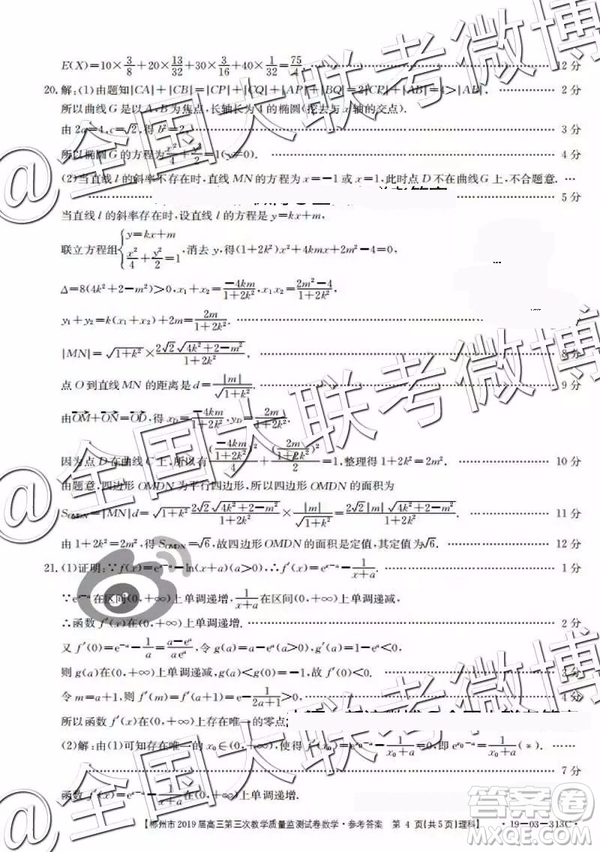 E(X)=10×3/8+20×13/32+30×3/16+40×1/32=75/4. 12分
20.解:(1)由题知|CA|+|CB|=|CP|+|CQ|+|AP|+|BQ|=2|CP|+|AB|=4>|AB|, 2分
所以曲线G是以A,B为焦点,长轴长为4的椭圆(挖去与x轴的交点).
由2a=4,c=√2,得b²=2,
所以椭圆G的方程为x²/4+y²/2=1(y≠0).
(2)当直线l的斜率不存在时,直线MN的方程为x=-1或x=1,此时点D不在曲线G上,不合题意.
5分
当直线l的斜率存在时,设直线l的方程为y=kx+m,
联立方程组{y=kx+m, x²/4+y²/2=1,消去y,得(1+2k²)x²+4kmx+2m²-4=0,
Δ=8(4k²+2-m²)>0,x₁+x₂=-4km/(1+2k²),x₁x₂=(2m²-4)/(1+2k²),
y₁+y₂=k(x₁+x₂)+2m=2m/(1+2k²).
|MN|=√(1+k²)×2√2√(4k²+2-m²)/(1+2k²) 8分
点O到直线MN的距离是d=|m|/√(1+k²). 9分
由OM+ON=OD,得x_D=-4km/(1+2k²),y_D=2m/(1+2k²).
因为点D在曲线C上,所以有(-4km/(1+2k²))²/4+(2m/(1+2k²))²/2=1,整理得1+2k²=2m². 10分
由题意,四边形OMDN为平行四边形,所以四边形OMDN的面积为
S_OMDN=|MN|d=√(1+k²)2√2√(4k²+2-m²)/(1+2k²)×|m|/√(1+k²)=2√2√(4k²+2-m²)|m|/(1+2k²). 11分
由1+2k²=2m²,得S_OMDN=√6,故四边形OMDN的面积是定值,其定值为√6. 12分
21.(1)证明:∵f(x)=e^(x-a)-ln(x+a)(a>0),∴f′(x)=e^(x-a)-1/(x+a). 1分
∵e^(x-a)在区间(0,+∞)上单调递增,1/(x+a)在区间(0,+∞)上单调递减,
∴函数f′(x)在(0,+∞)上单调递增.
又f′(0)=e^(-a)-1/a=(a-e^a)/(ae^a),令g(a)=a-e^a(a>0),g′(a)=1-e^a<0,
则g(a)在(0,+∞)上单调递减,g(a)<g(0)=-1,故f′(0)<0.
令m=a+1,则f′(m)=f′(a+1)=e-1/(2a+1)>0,
所以函数f′(x)在(0,+∞)上存在唯一的零点.
(2)解:由(1)可知存在唯一的x₀∈(0,+∞),使得f′(x₀)=e^(x₀-a)-1/(x₀+a)=0,即e^(x₀-a)=1/(x₀+a) (*).
7分
函数f′(x)=e^(x-a)-1/(x+a)在(0,+∞)上单调递增.
【郴州市2019届高三第三次教学质量监测试卷数学·参考答案 第4页(共5页)理科】 ·19-03-313C·
@全国大联考微博
@全国大联考微博
@全国大联考微博
答案圈
MXQE.COM